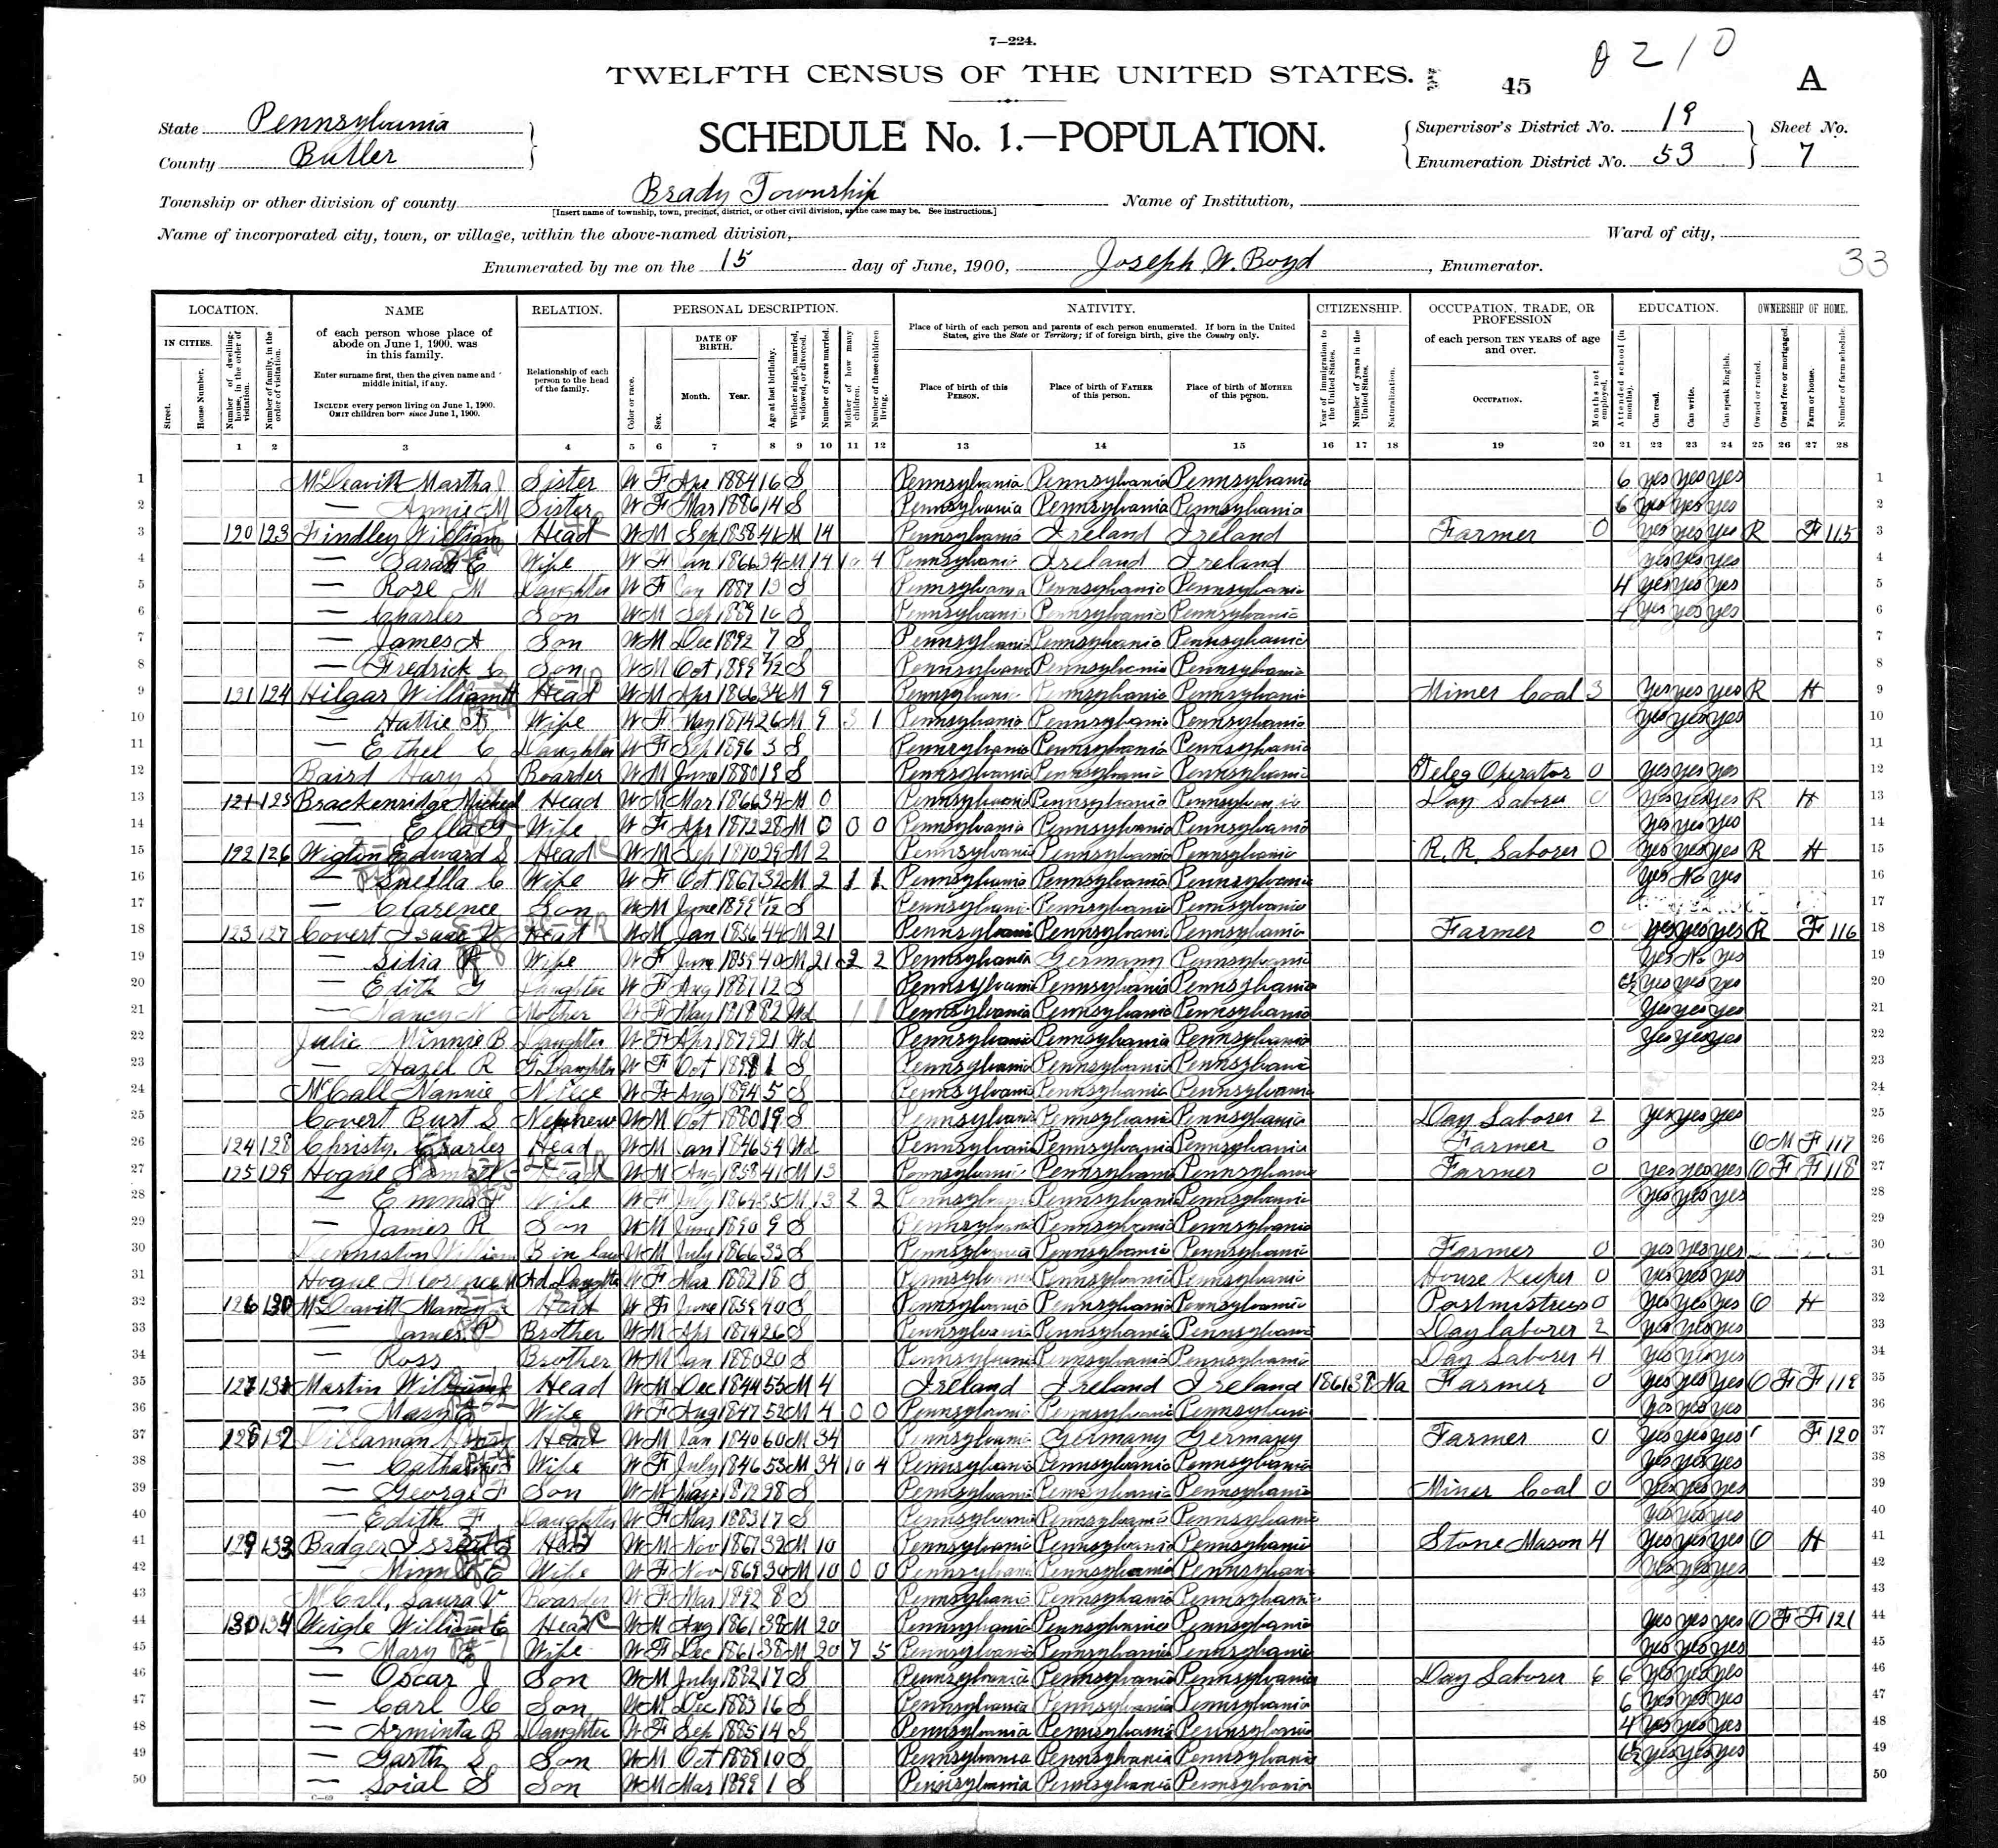 7—224.
0210
TWELFTH CENSUS OF THE UNITED STATES.
45
A
State Pennsylvania
County Butler
SCHEDULE No. 1.—POPULATION.
Supervisor's District No. 19
Enumeration District No. 53
Sheet No. 7
Township or other division of county Brady Township
[Insert name of township, town, precinct, district, or other civil division, as the case may be. See instructions.]
Name of Institution,
Name of incorporated city, town, or village, within the above-named division,
Ward of city,
Enumerated by me on the 15 day of June, 1900, Joseph W. Boyd, Enumerator.
33
LOCATION. NAME RELATION. PERSONAL DESCRIPTION. NATIVITY. CITIZENSHIP. OCCUPATION, TRADE, OR PROFESSION EDUCATION. OWNERSHIP OF HOME.
IN CITIES.
Street.
House Number.
Number of dwelling-house, in the order of visitation.
Number of family, in the order of visitation.
of each person whose place of abode on June 1, 1900, was in this family.
Enter surname first, then the given name and middle initial, if any.
INCLUDE every person living on June 1, 1900.
OMIT children born since June 1, 1900.
Relationship of each person to the head of the family.
Color or race.
Sex.
DATE OF BIRTH.
Month.
Year.
Age at last birthday.
Whether single, married, widowed, or divorced.
Number of years married.
Mother of how many children.
Number of these children living.
Place of birth of each person and parents of each person enumerated. If born in the United States, give the State or Territory; if of foreign birth, give the Country only.
Place of birth of this PERSON.
Place of birth of FATHER of this person.
Place of birth of MOTHER of this person.
Year of immigration to the United States.
Number of years in the United States.
Naturalization.
of each person TEN YEARS of age and over.
OCCUPATION.
Months not employed.
Attended school (in months).
Can read.
Can write.
Can speak English.
Owned or rented.
Owned free or mortgaged.
Farm or house.
Number of farm schedule.
1 2 3 4 5 6 7 8 9 10 11 12 13 14 15 16 17 18 19 20 21 22 23 24 25 26 27 28
1 McDeavitt Martha J Sister W F Apr 1884 16 S Pennsylvania Pennsylvania Pennsylvania 6 yes yes yes 1
2 — Annie M Sister W F Mar 1886 14 S Pennsylvania Pennsylvania Pennsylvania 6 yes yes yes 2
3 120 123 Findley William Head W M Sep 1858 41 M 14 Pennsylvania Ireland Ireland Farmer 0 yes yes yes R F 115 3
4 — Sarah E Wife W F Jan 1866 34 M 14 4 Pennsylvania Ireland Ireland yes yes yes 4
5 — Rose M Daughter W F Jan 1887 13 S Pennsylvania Pennsylvania Pennsylvania 4 yes yes yes 5
6 — Charles Son W M Sep 1889 10 S Pennsylvania Pennsylvania Pennsylvania 4 yes yes yes 6
7 — James A Son W M Dec 1892 7 S Pennsylvania Pennsylvania Pennsylvania 7
8 — Fredrick Son W M Oct 1899 7/12 S Pennsylvania Pennsylvania Pennsylvania 8
9 121 124 Hilgar William H Head W M Apr 1866 34 M 9 Pennsylvania Pennsylvania Pennsylvania Miner Coal 3 yes yes yes R H 9
10 — Hattie Wife W F May 1874 26 M 9 3 1 Pennsylvania Pennsylvania Pennsylvania yes yes yes 10
11 — Ethel C Daughter W F Sep 1896 3 S Pennsylvania Pennsylvania Pennsylvania 11
12 Baird Harry S Boarder W M June 1880 19 S Pennsylvania Pennsylvania Pennsylvania Teleg Operator 0 yes yes yes 12
13 121 125 Brackenridge Michael Head W M Mar 1866 34 M 0 Pennsylvania Pennsylvania Pennsylvania Day Laborer 0 yes yes yes R H 13
14 — Ella Wife W F Apr 1872 28 M 0 0 0 Pennsylvania Pennsylvania Pennsylvania yes yes yes 14
15 122 126 Wigton Edward S Head W M Sep 1870 29 M 2 Pennsylvania Pennsylvania Pennsylvania R. R. Laborer 0 yes yes yes R H 15
16 — C Wife W F Oct 1867 32 M 2 1 1 Pennsylvania Pennsylvania Pennsylvania yes No yes 16
17 — Clarence Son W M June 1899 11/12 S Pennsylvania Pennsylvania Pennsylvania 17
18 123 127 Covert Isaac V Head W M Jan 1856 44 M 21 Pennsylvania Pennsylvania Pennsylvania Farmer 0 yes yes yes R F 116 18
19 — Lidia Wife W F June 1859 40 M 21 2 2 Pennsylvania Germany Pennsylvania yes No yes 19
20 — Edith Daughter W F Aug 1887 12 S Pennsylvania Pennsylvania Pennsylvania 6½ yes yes yes 20
21 — Nancy N Mother W F May 1818 82 Wd 1 1 Pennsylvania Pennsylvania Pennsylvania yes yes yes 21
22 Julie Minnie B Daughter W F Apr 1879 21 Wd Pennsylvania Pennsylvania Pennsylvania yes yes yes 22
23 — Hazel R G Daughter W F Oct 1898 1 S Pennsylvania Pennsylvania Pennsylvania 23
24 McCall Nannie Niece W F Aug 1894 5 S Pennsylvania Pennsylvania Pennsylvania 24
25 Covert Burt S Nephew W M Oct 1880 19 S Pennsylvania Pennsylvania Pennsylvania Day Laborer 2 yes yes yes 25
26 124 128 Christy, Charles Head W M Jan 1846 54 Wd Pennsylvania Pennsylvania Pennsylvania Farmer 0 O M F 117 26
27 125 129 Hogue Head W M Aug 1858 41 M 13 Pennsylvania Pennsylvania Pennsylvania Farmer 0 yes yes yes O F F 118 27
28 — Emma F Wife W F July 1864 35 M 13 2 2 Pennsylvania Pennsylvania Pennsylvania yes yes yes 28
29 — James R Son W M June 1890 9 S Pennsylvania Pennsylvania Pennsylvania 29
30 Denniston William B in law W M July 1866 33 S Pennsylvania Pennsylvania Pennsylvania Farmer 0 yes yes yes 30
31 Hogue Florence Ad Daughter W F Mar 1882 18 S Pennsylvania Pennsylvania Pennsylvania House Keeper 0 yes yes yes 31
32 126 130 McDeavitt Nancy Head W F June 1859 40 S Pennsylvania Pennsylvania Pennsylvania Postmistress 0 yes yes yes O H 32
33 — James P Brother W M Apr 1874 26 S Pennsylvania Pennsylvania Pennsylvania Day laborer 2 yes yes yes 33
34 — Ross Brother W M Jan 1880 20 S Pennsylvania Pennsylvania Pennsylvania Day Laborer 4 yes yes yes 34
35 127 131 Martin William J Head W M Dec 1844 55 M 4 Ireland Ireland Ireland 1861 38 Na Farmer 0 yes yes yes O F F 119 35
36 — Mary Wife W F Aug 1847 52 M 4 0 0 Pennsylvania Pennsylvania Pennsylvania yes yes yes 36
37 128 132 Dillaman Henry Head W M Jan 1840 60 M 34 Pennsylvania Germany Germany Farmer 0 yes yes yes F 120 37
38 — Catharine Wife W F July 1846 53 M 34 10 4 Pennsylvania Pennsylvania Pennsylvania yes yes yes 38
39 — George F Son W M 1872 28 S Pennsylvania Pennsylvania Pennsylvania Miner Coal 0 yes yes yes 39
40 — Edith F Daughter W F Mar 1883 17 S Pennsylvania Pennsylvania Pennsylvania yes yes yes 40
41 129 133 Badger Israel Head W M Nov 1867 32 M 10 Pennsylvania Pennsylvania Pennsylvania Stone Mason 4 yes yes yes O H 41
42 — Minnie E Wife W F Nov 1869 30 M 10 0 0 Pennsylvania Pennsylvania Pennsylvania yes yes yes 42
43 McCall, Laura V Boarder W F Mar 1892 8 S Pennsylvania Pennsylvania Pennsylvania 43
44 130 134 Weigle William E Head W M Aug 1861 38 M 20 Pennsylvania Pennsylvania Pennsylvania yes yes yes O F F 121 44
45 — Mary E Wife W F Dec 1861 38 M 20 7 5 Pennsylvania Pennsylvania Pennsylvania yes yes yes 45
46 — Oscar J Son W M July 1882 17 S Pennsylvania Pennsylvania Pennsylvania Day Laborer 6 6 yes yes yes 46
47 — Carl C Son W M Dec 1883 16 S Pennsylvania Pennsylvania Pennsylvania 6 yes yes yes 47
48 — Arminta B Daughter W F Sep 1885 14 S Pennsylvania Pennsylvania Pennsylvania 4 yes yes yes 48
49 — Garth L Son W M Oct 1889 10 S Pennsylvania Pennsylvania Pennsylvania 6½ yes yes yes 49
50 — Loial S Son W M Mar 1899 1 S Pennsylvania Pennsylvania Pennsylvania 50